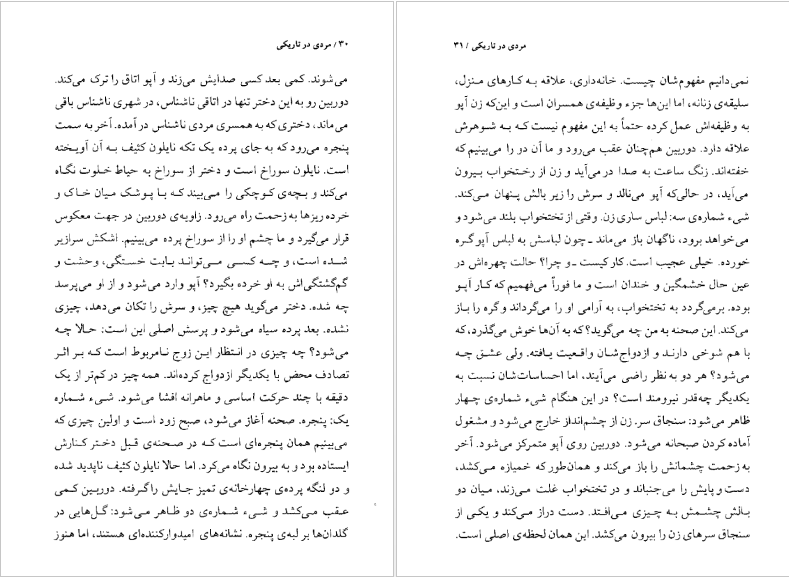 ۳۰ / مردی در تاریکی
می‌شوند. کمی بعد کسی صدایش می‌زند و آپو اتاق را ترک می‌کند.
دوربین رو به این دختر تنها در اتاقی ناشناس، در شهری ناشناس باقی
می‌ماند، دختری که به همسری مردی ناشناس در آمده. آخر به سمت
پنجره می‌رود که به جای پرده یک تکه نایلون کثیف به آن آویخته
است. نایلون سوراخ است و دختر از سوراخ به حیاط خلوت نگاه
می‌کند و بچه‌ی کوچکی را می‌بیند که با پوشک میان خاک و
خرده ریزها به زحمت راه می‌رود. زاویه‌ی دوربین در جهت معکوس
قرار می‌گیرد و ما چشم او را از سوراخ پرده می‌بینیم. اشکش سرازیر
شده است، و چه کسی می‌تواند بابت خستگی، وحشت و
گم‌گشتگی‌اش به او خرده بگیرد؟ آپو وارد می‌شود و از او می‌پرسد
چه شده. دختر می‌گوید هیچ چیز، و سرش را تکان می‌دهد، چیزی
نشده. بعد پرده سیاه می‌شود و پرسش اصلی این است: حالا چه
می‌شود؟ چه چیزی در انتظار این زوج نامربوط است که بر اثر
تصادف محض با یکدیگر ازدواج کرده‌اند. همه چیز در کم‌تر از یک
دقیقه با چند حرکت اساسی و ماهرانه افشا می‌شود. شیء شماره
یک: پنجره. صحنه آغاز می‌شود، صبح زود است و اولین چیزی که
می‌بینیم همان پنجره‌ای است که در صحنه‌ی قبل دختر کنارش
ایستاده بود و به بیرون نگاه می‌کرد. اما حالا نایلون کثیف ناپدید شده
و دو لنگه پرده‌ی چهارخانه‌ی تمیز جایش را گرفته. دوربین کمی
عقب می‌کشد و شیء شماره‌ی دو ظاهر می‌شود: گل‌هایی در
گلدان‌ها بر لبه‌ی پنجره. نشانه‌های امیدوارکننده‌ای هستند، اما هنوز
مردی در تاریکی / ۳۱
نمی‌دانیم مفهوم‌شان چیست. خانه‌داری، علاقه به کارهای منزل،
سلیقه‌ی زنانه، اما این‌ها جزء وظیفه‌ی همسران است و این‌که زن آپو
به وظیفه‌اش عمل کرده حتماً به این مفهوم نیست که به شوهرش
علاقه دارد. دوربین هم‌چنان عقب می‌رود و ما آن دو را می‌بینیم که
خفته‌اند. زنگ ساعت به صدا در می‌آید و زن از رختخواب بیرون
می‌آید، در حالی‌که آپو می‌نالد و سرش را زیر بالش پنهان می‌کند.
شیء شماره‌ی سه: لباس ساری زن. وقتی از تختخواب بلند می‌شود و
می‌خواهد برود، ناگهان باز می‌ماند ـ چون لباسش به لباس آپو گره
خورده. خیلی عجیب است. کار کیست ـ و چرا؟ حالت چهره‌اش در
عین حال خشمگین و خندان است و ما فوراً می‌فهمیم که کار آپو
بوده. برمی‌گردد به تختخواب، به آرامی او را می‌گرداند و گره را باز
می‌کند. این صحنه به من چه می‌گوید؟ که به آن‌ها خوش می‌گذرد، که
با هم شوخی دارند و ازدواج‌شان واقعیت یافته. ولی عشق چه
می‌شود؟ هر دو به نظر راضی می‌آیند، اما احساسات‌شان نسبت به
یکدیگر چه‌قدر نیرومند است؟ در این هنگام شیء شماره‌ی چهار
ظاهر می‌شود: سنجاق سر. زن از چشم‌انداز خارج می‌شود و مشغول
آماده کردن صبحانه می‌شود. دوربین روی آپو متمرکز می‌شود. آخر
به زحمت چشمانش را باز می‌کند و همان‌طور که خمیازه می‌کشد،
دست و پایش را می‌جنباند و در تختخواب غلت می‌زند، میان دو
بالش چشمش به چیزی می‌افتد. دست دراز می‌کند و یکی از
سنجاق سرهای زن را بیرون می‌کشد. این همان لحظه‌ی اصلی است.